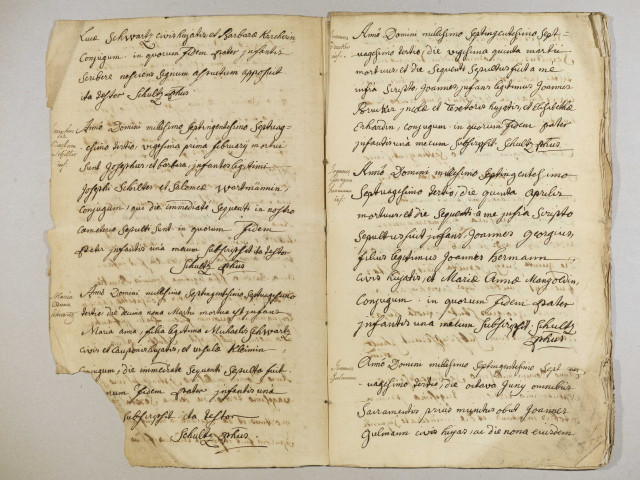 Lucæ Schwartz civis hujatis et Barbaræ Karcherin
Conjugum. in quorum fidem pater infantis
Scribere nesciens Signum assuetum apposuit
ita testor Schultz pbus
Anno Domini millesimo Septringentesimo Septuag-
esimo tertio, vigesima prima februarij mortui
Sunt Josephus, et barbara, infantes legitimi
Josephi Schilter et Salomeæ Wortmannin,
conjugum, qui die immediate Sequenti in nostro
Cœmeterio Sepulti Sunt in quorum fidem
pater infantis una mecum Subscripsit ita testor
Schultz pbus
Maria
Anna
Schwartz
Anno Domini millesimo Septingentesimo Septuagesimo
tertio die decima nona Martii mortua est infans
Maria anna, filia legitima Michaelis Schwartz
civis et Cauponis hujatis, et ursulæ Kleinin
conjugum, die immediate Sequenti Sepulta fuit
quorum fidem pater infantis una
Subscripsit ita testor
Schultz pbus.
Joannes
inf:
Anno Domini millesimo Septingentesimo Sept-
uagesimo tertio, die vigesima quinta martii
mortuus, et die Sequenti Sepultus fuit a me
infra Scripto, Joannes, infans legitimus Joannis
et Textoris hujatis, et Elisabethæ
Erhardin, conjugum, in quorum fidem pater
infantis una mecum Subscripsit Schultz pbus.
Joannes
Georgius
Hermann
inf:
Anno Domini millesimo Septingentesimo
Septuagesimo tertio, die quinta Aprilis
mortuus, et die Sequenti a me infra Scripto
Sepultus fuit infans, Joannes Georgius,
filius legitimus Joannis hermann
civis hujatis, et Mariæ Annæ Mangoldin,
Conjugum. in quorum fidem pater
infantis una mecum Subscripsit Schultz
pbus
Joannes
Gulmann
Anno Domini millesimo Septingentesimo Sept
uagesimo tertio, die octava Juny omnibus
Sacramentis prius munitus obiit Joannes
Gulmann civis hujas, ac die nona ejusdem